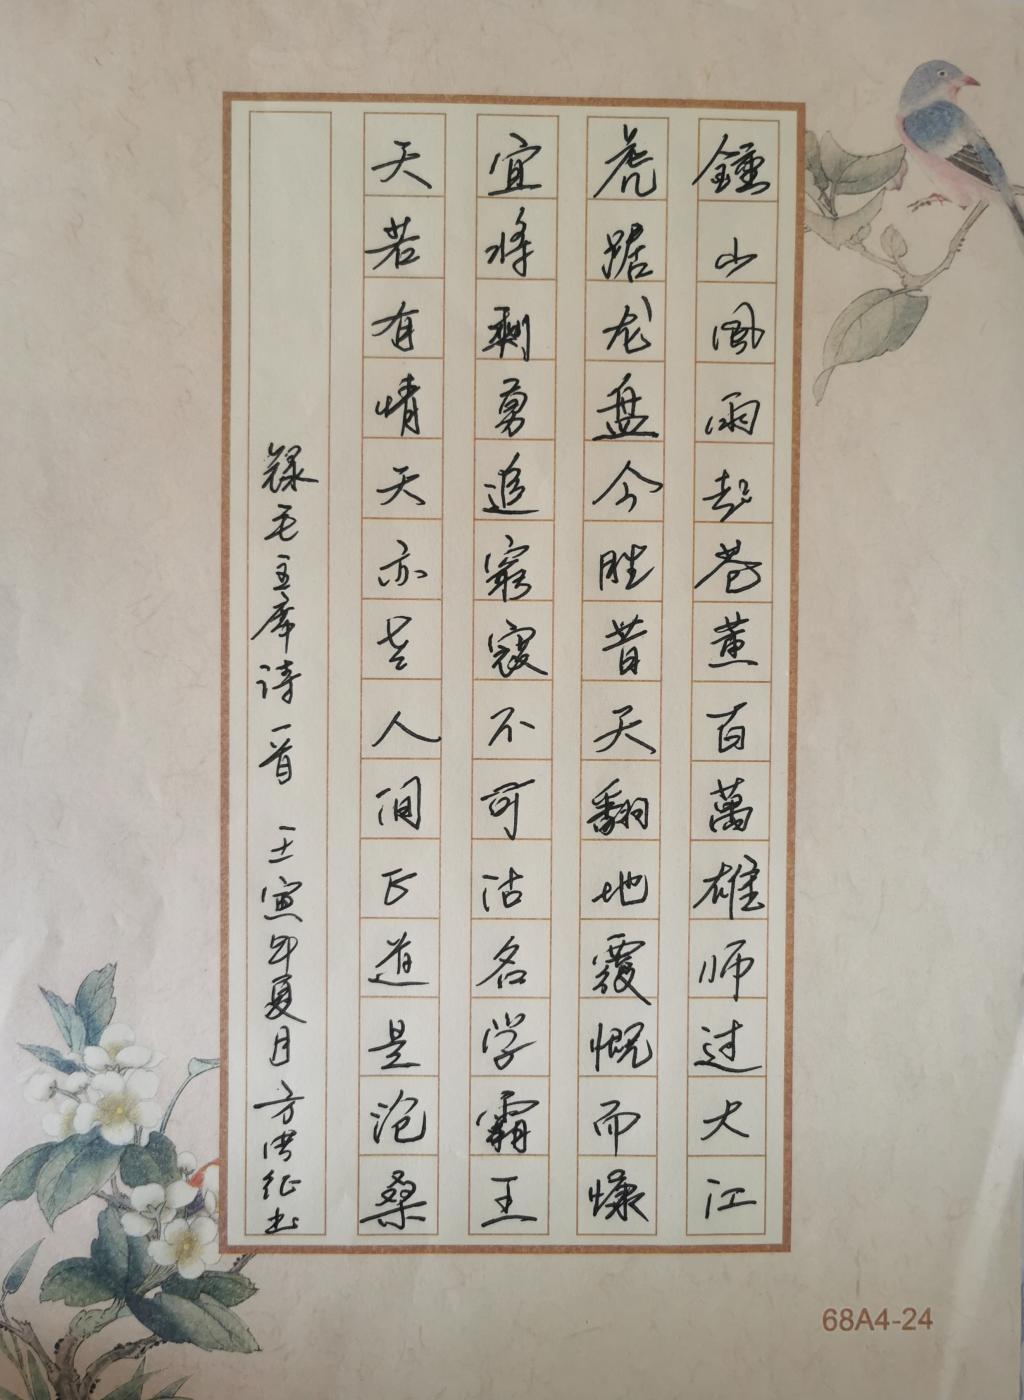 鍾山風雨起苍黄百萬雄师过大江
虎踞龙盘今胜昔天翻地覆慨而慷
宜将剩勇追窮寇不可沽名学霸王
天若有情天亦老人间正道是沧桑
録毛主席诗一首 壬寅年夏月方洪征书
68A4-24